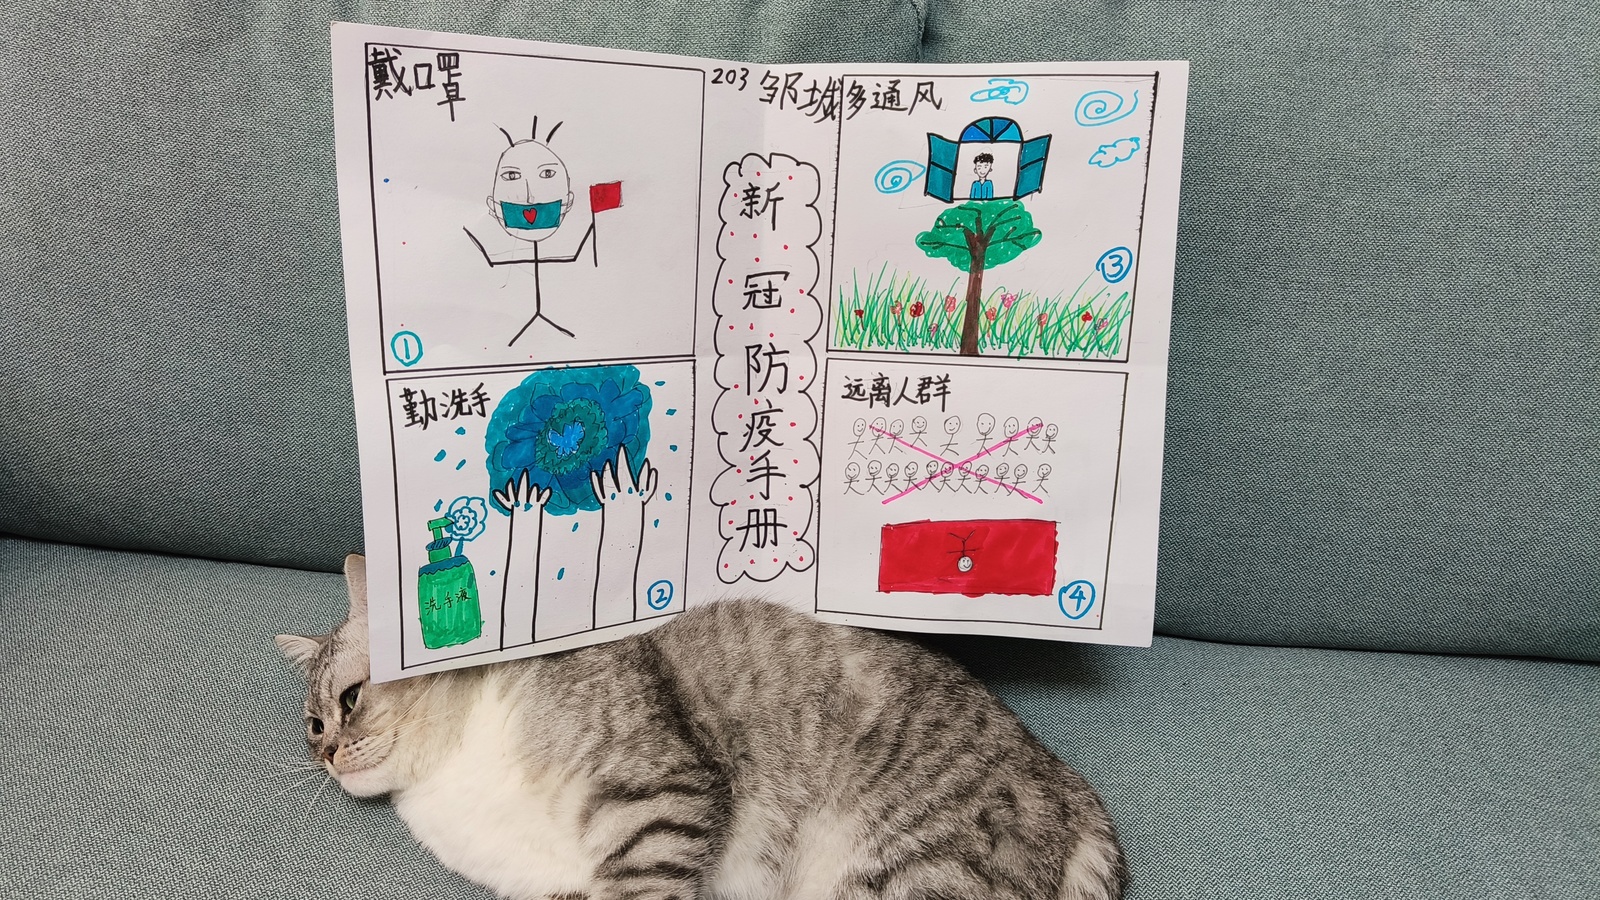 戴口罩
①
勤洗手
洗手液
②
203 邹城
新冠防疫手册
多通风
③
远离人群
④